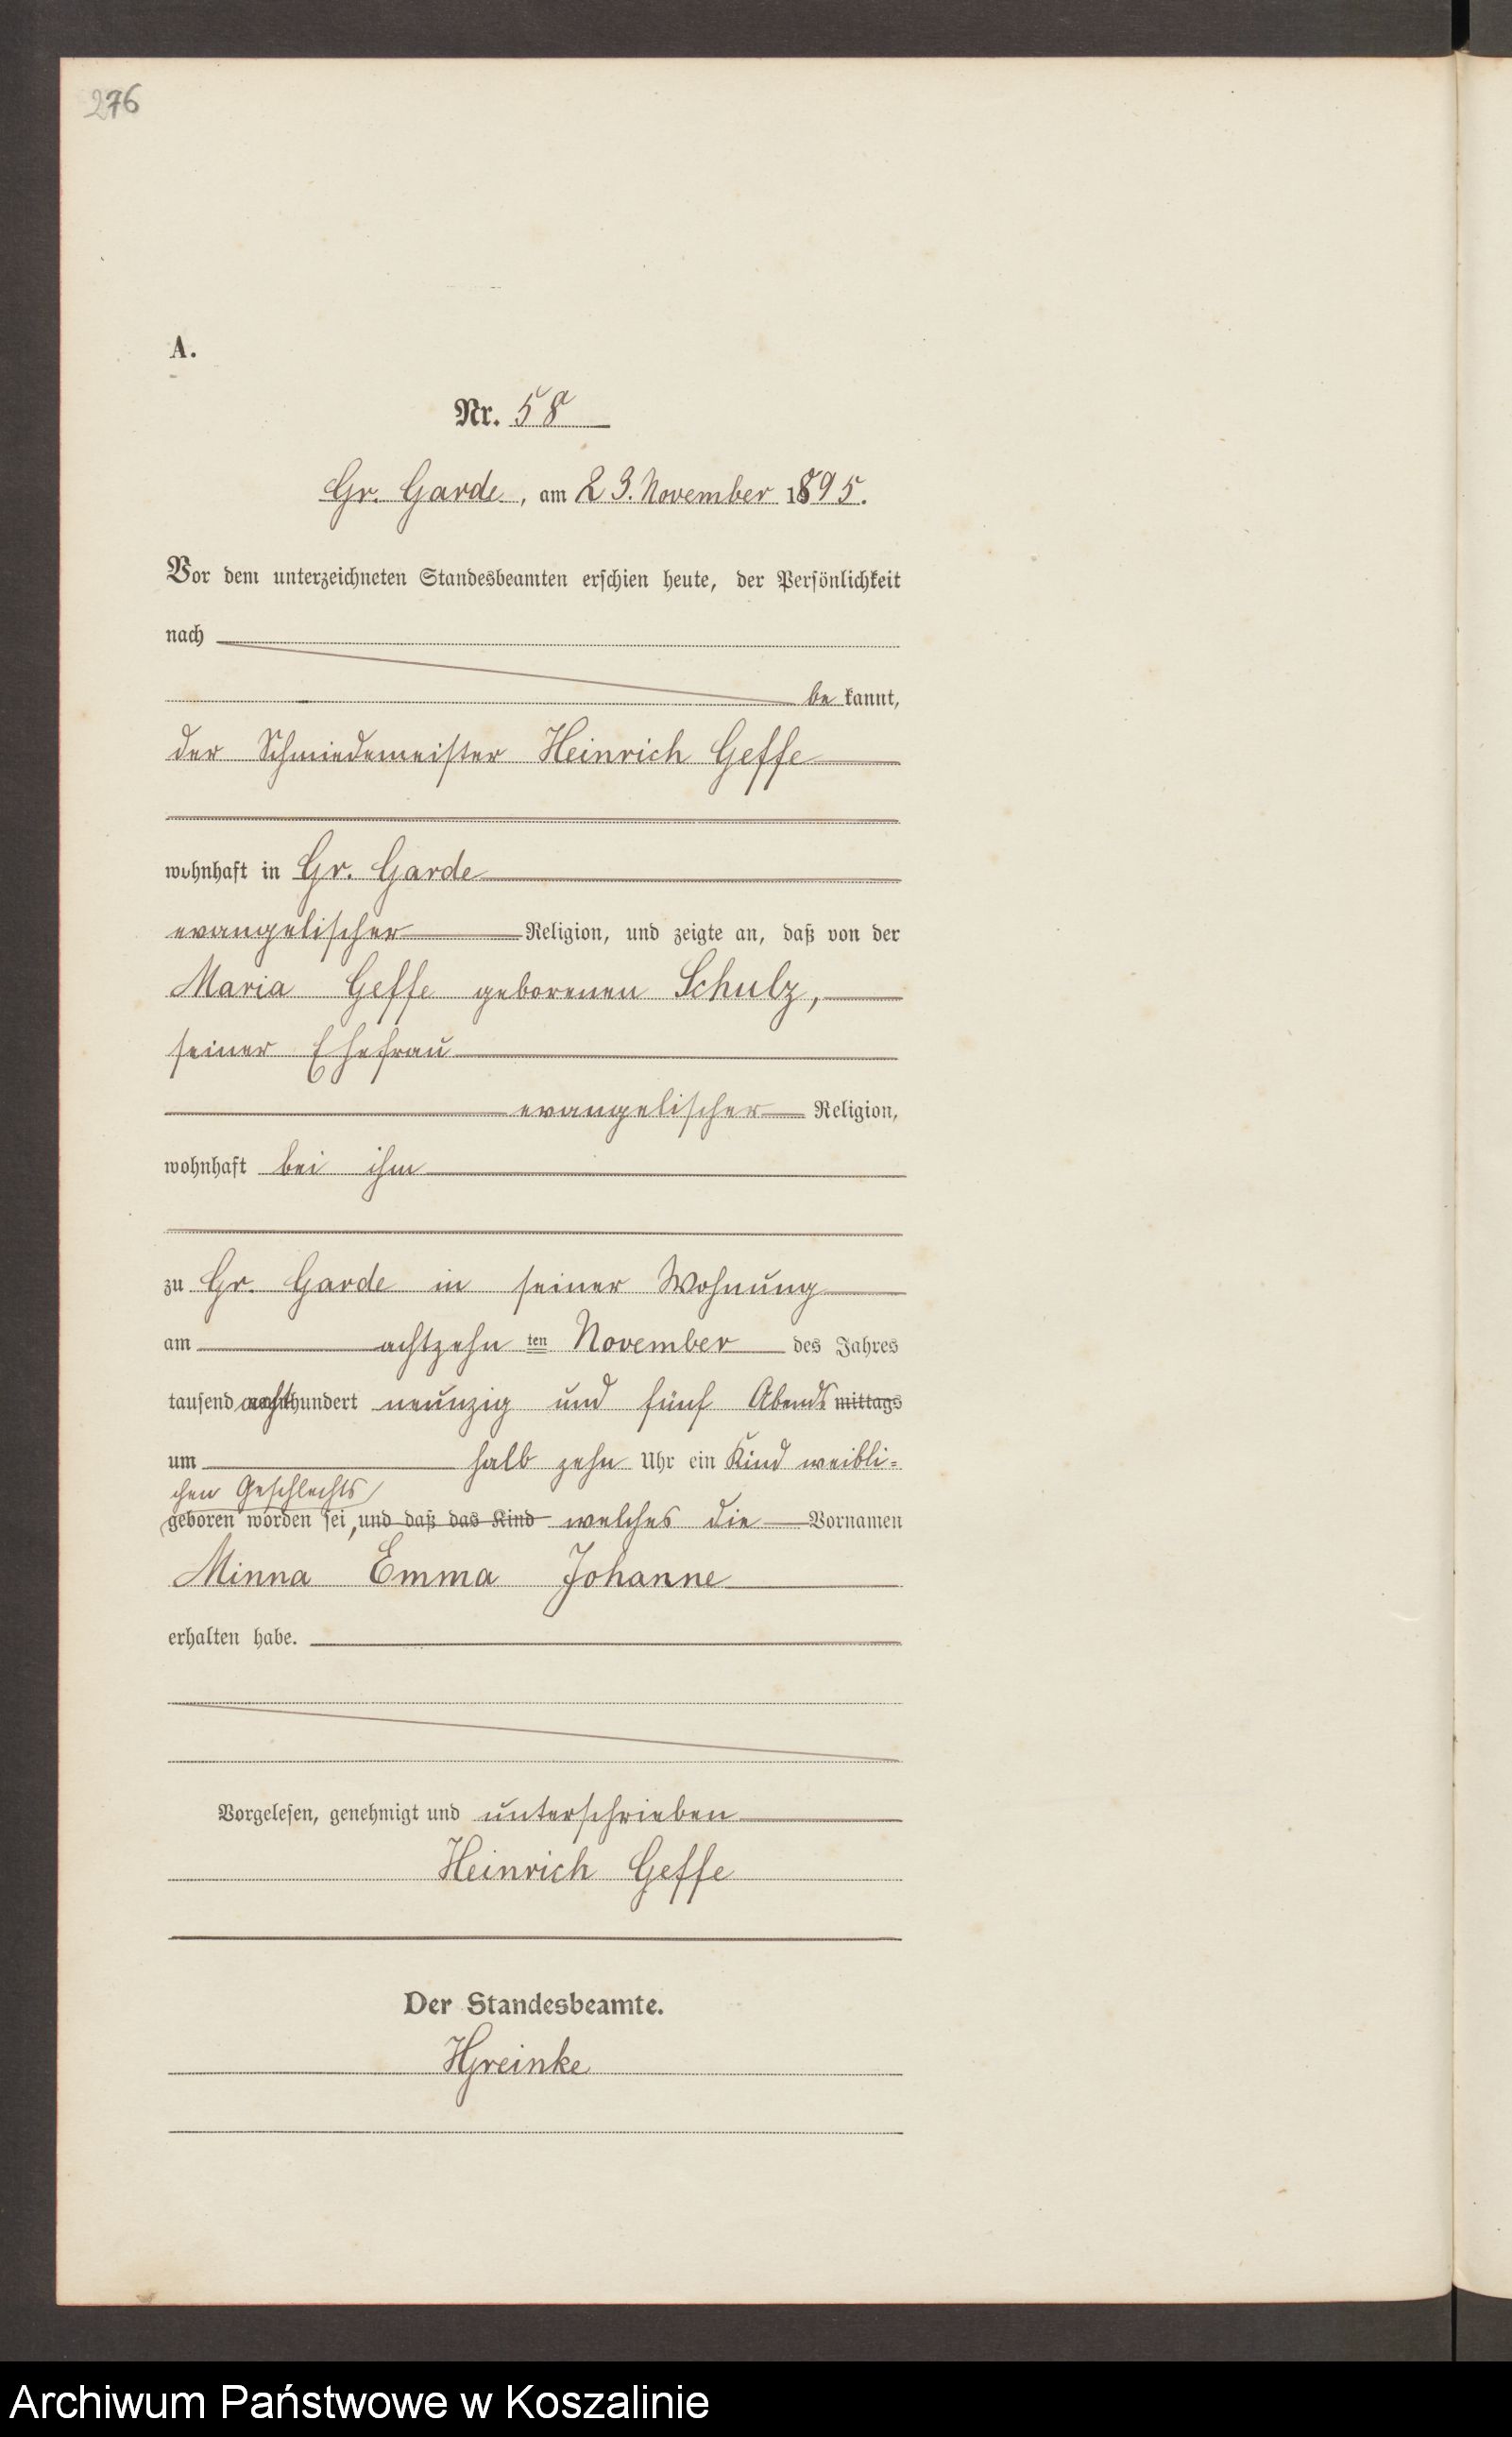 276
A.
Nr. 58
Gr. Garde, am 23. November 1895.
Vor dem unterzeichneten Standesbeamten erschien heute, der Persönlichkeit
nach
be kannt,
der Schmiedemeister Heinrich Geffe
wohnhaft in Gr. Garde
evangelischer Religion, und zeigte an, daß von der
Maria Geffe geborenen Schulz,
seiner Ehefrau
evangelischer Religion,
wohnhaft bei ihm
zu Gr. Garde in seiner Wohnung
am achtzehn ten November des Jahres
tausend achthundert neunzig und fünf Abends mittags
um halb zehn Uhr ein Kind weibli=
chen Geschlechts
geboren worden sei, und daß das Kind welches die Vornamen
Minna Emma Johanne
erhalten habe.
Vorgelesen, genehmigt und unterschrieben
Heinrich Geffe
Der Standesbeamte.
HGreinke
Archiwum Państwowe w Koszalinie